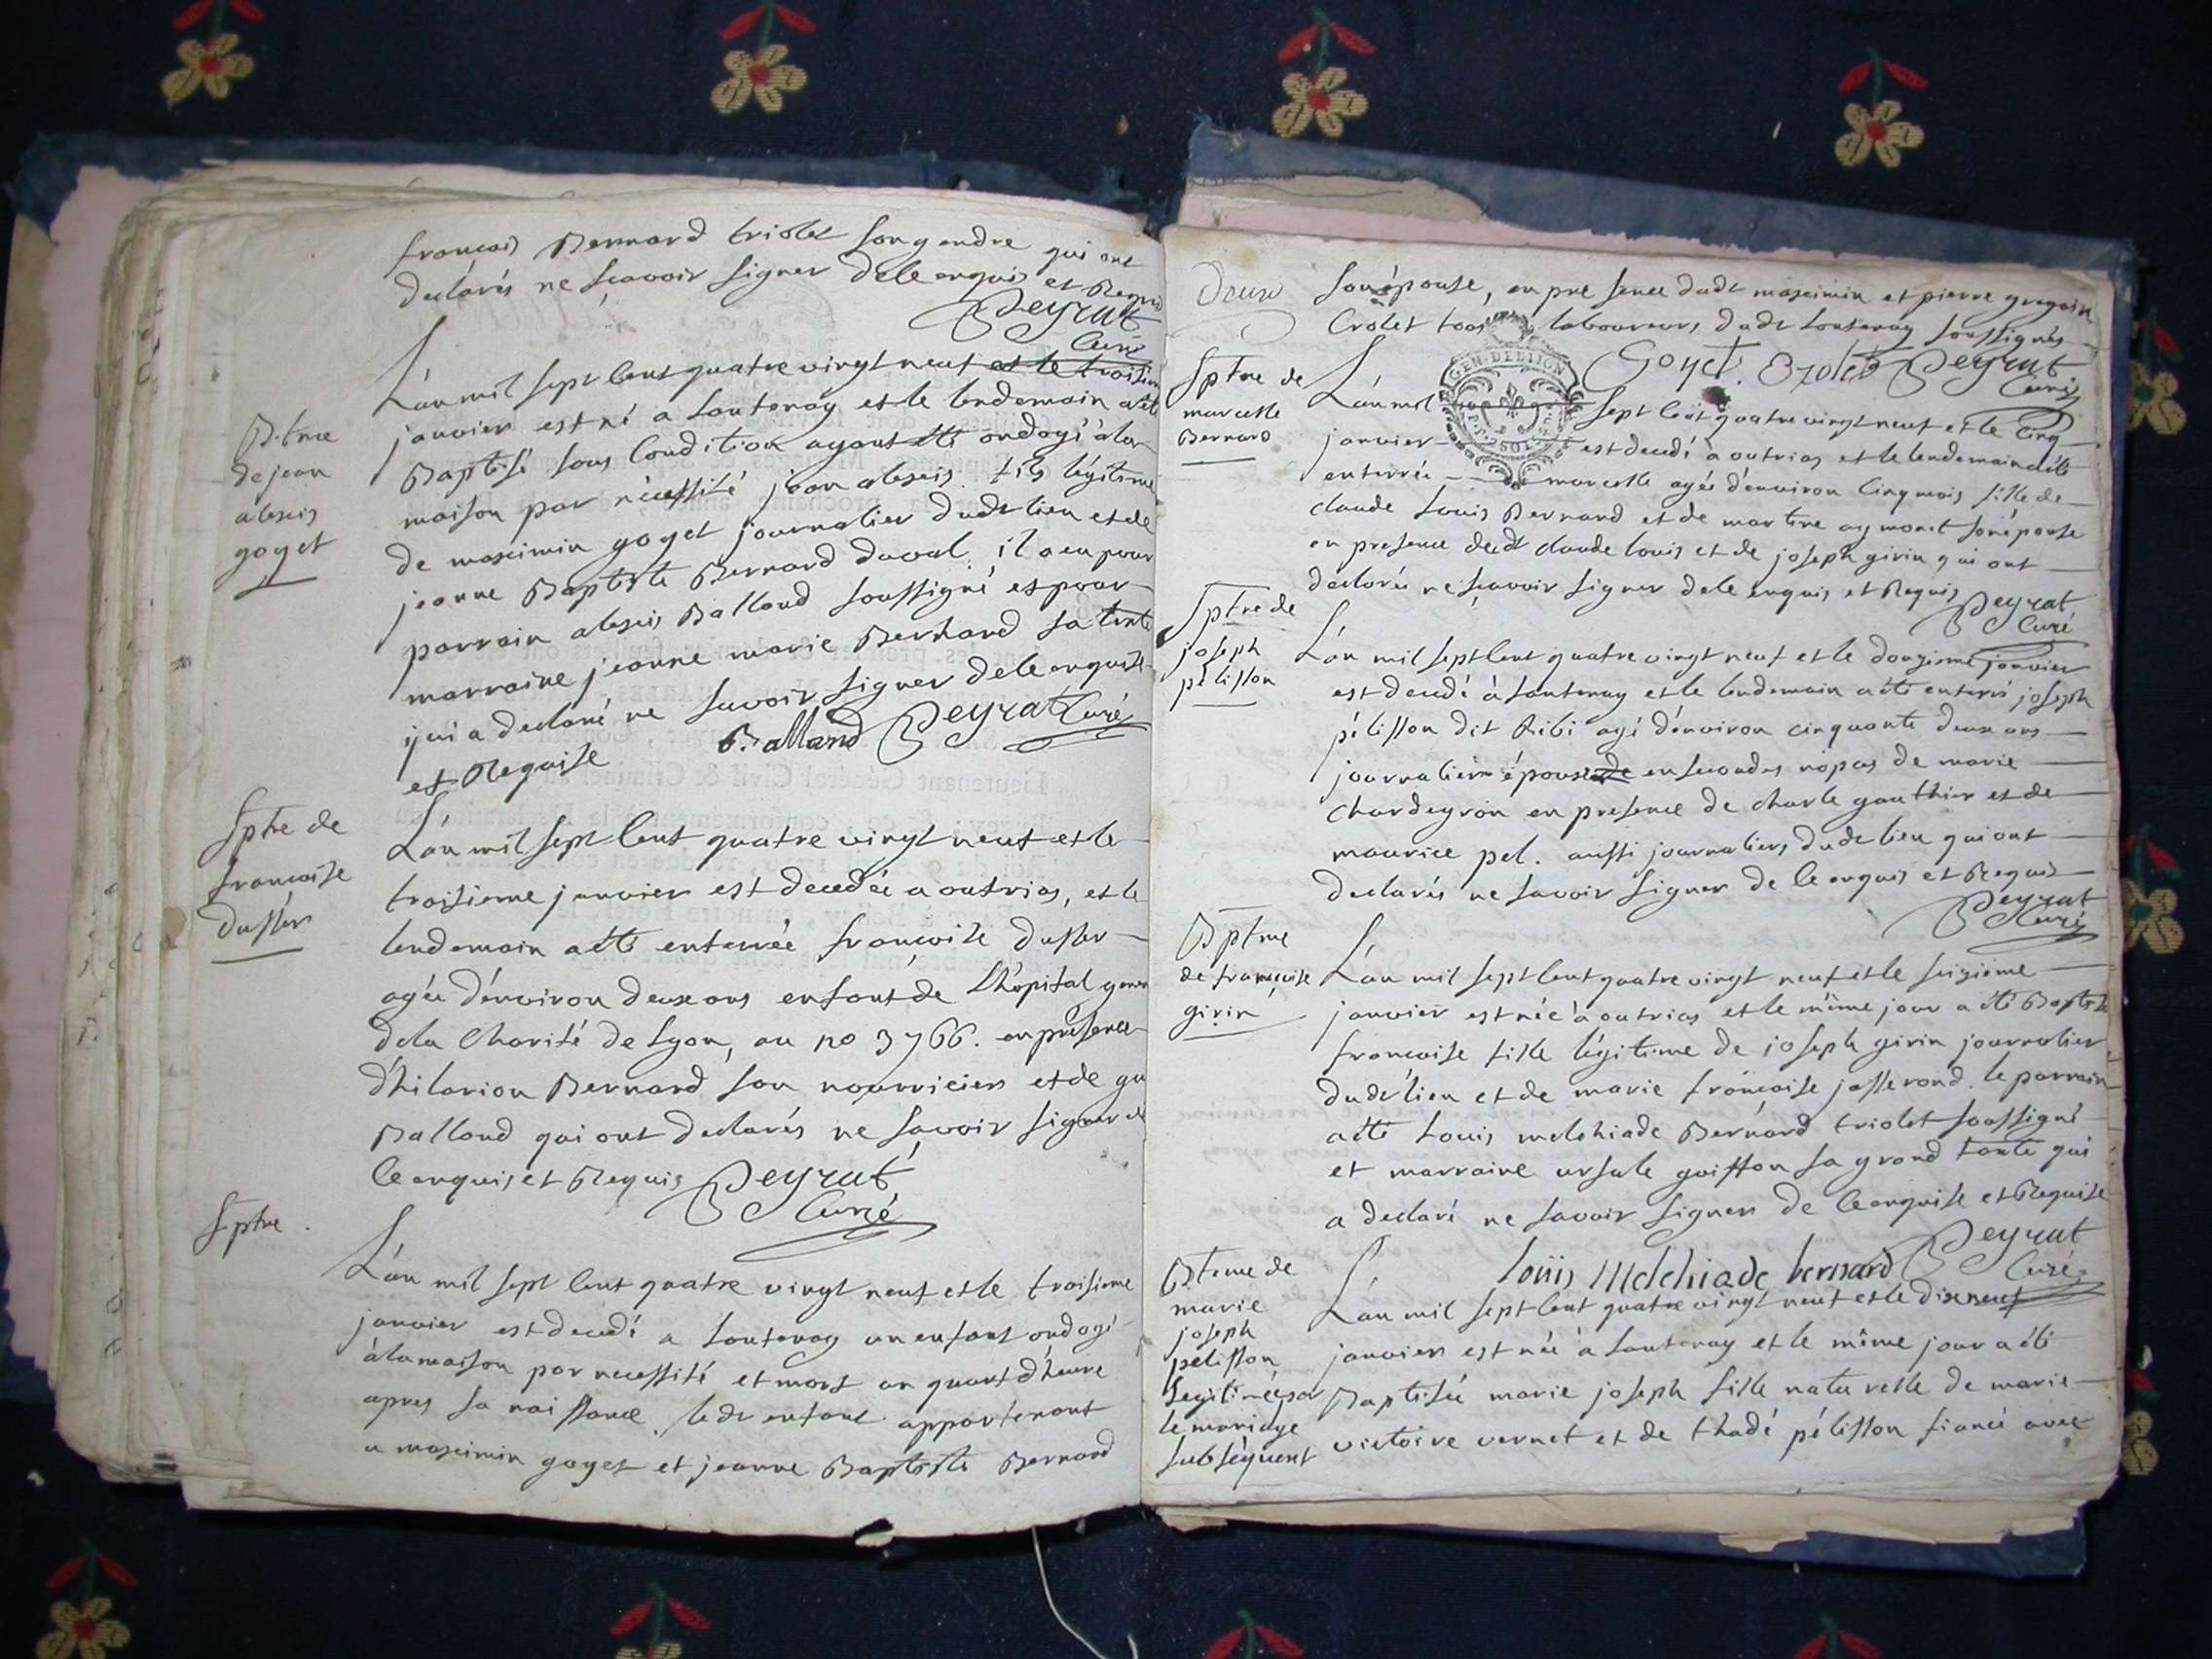 francois Bernard triolet son gendre qui ont
declarés ne sçavoir signer de ce enquis et Requis
Peyrat
Curé
B.tme
de jean
alexis
goyet
L'an mil sept cent quatre vingt neuf et le troisieme
janvier est né a Lantenay et le lendemain a été
Baptisé sous Condition ayant été ondoyé à la
maison par nécessité jean alexis fils légitime
de maximin goyet journalier dudt lieu et de
jeanne Baptiste Bernard duval. il a eu pour
parrain alexis Balland soussigné et pour
marraine jeanne marie Bernard sa tante
qui a declaré ne savoir signer de ce enquise
et Requise
Balland Peyrat Curé
Sptre de
francoise
dusser
L'an mil sept Cent quatre vingt neuf et le
troisieme janvier est decedée a outrias, et le
lendemain a été enterrée francoise dusser
agée d'environ deux ans enfant de L'hôpital
de la Charité de Lyon, au no 3766. en présence
d'hilarion Bernard son nourricier et de
Balland qui ont declarés ne savoir signer de
ce enquis et Requis Peyrat
Curé
Sptre.
L'an mil sept Cent quatre vingt neuf et le troisieme
janvier est decedé a Lantenay un enfant ondoyé
à la maison par necessité et mort un quart d'heure
apres sa naissance. ledt enfant appartenant
a maximin goyet et jeanne Baptiste Bernard
deux
son épouse, en presence dudt maximin et pierre gregoire
Crolet tous laboureurs dudt Lantenay soussignés
Goyet. Crolet Peyrat
Curé
GEN. DE DIJON
Sptre de
marcelle
Bernard
L'an mil sept Cent quatre vingt neuf et le cinq
janvier est decedé a outrias et le lendemain a été
enterrée marcelle agée d'environ Cinq mois fille de
claude Louis Bernard et de martine aymonet son épouse
en presence dudt claude louis et de joseph girin qui ont
declarés ne sçavoir signer de ce enquis et Requis
Peyrat
Curé
Sptre de
joseph
pélisson
L'an mil sept Cent quatre vingt neuf et le douzieme janvier
est decedé à Lantenay et le lendemain a été enterré joseph
pélisson dit Ribi agé d'environ cinquante deux ans
journalier époux de en secondes nopces de marie
Chardeyron en presence de charle gauthier et de
maurice pel. aussi journaliers dudt lieu qui ont
declarés ne savoir signer de ce enquis et Requis
Peyrat
Curé
Bptme
de francoise
girin
L'an mil sept Cent quatre vingt neuf et le seizieme
janvier est née à outrias et le même jour a été Baptisée
francoise fille légitime de joseph girin journalier
dudt lieu et de marie francoise josserand. le parrain
a été Louis melchiade Bernard triolet soussigné
et marraine ursule goiffon sa grand tante qui
a declaré ne savoir signer de ce enquise et Requise
louis Melchiade bernard Peyrat
Curé
Bteme de
marie
joseph
pélisson
Legitimée par
le mariage
subséquent
L'an mil sept Cent quatre vingt neuf et le dix neuf
janvier est née à Lantenay et le même jour a été
Baptisée marie joseph fille naturelle de marie
victoire vernet et de thadé pélisson fiancé avec